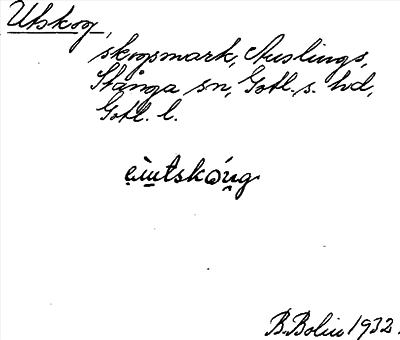 Utskog,
skogsmark, Auslings,
Stånga sn, Gotl. s. hd,
Gotl. l.
B. Bolin 1932.